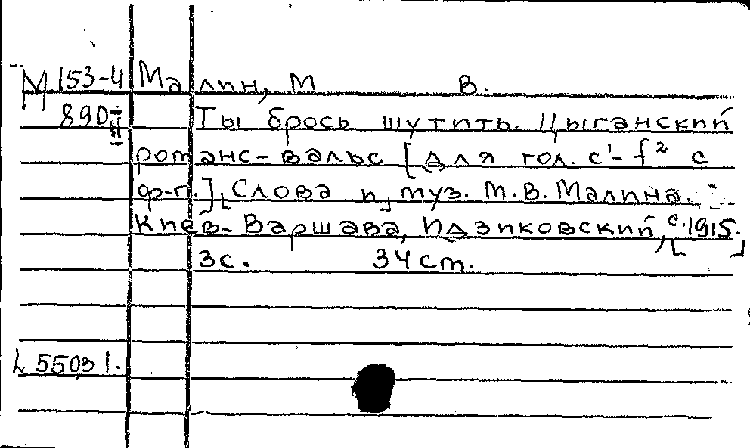 М 153-4 Малин, М В.
890 II Ты брось шутить. Цыганский
романс-вальс [для гол. c¹-f² с
ф-п.] [Слова и] муз. М.В. Малина.
Киев-Варшава, Идзиковский, [с. 1915.]
3с. 34 см.
L 55031.